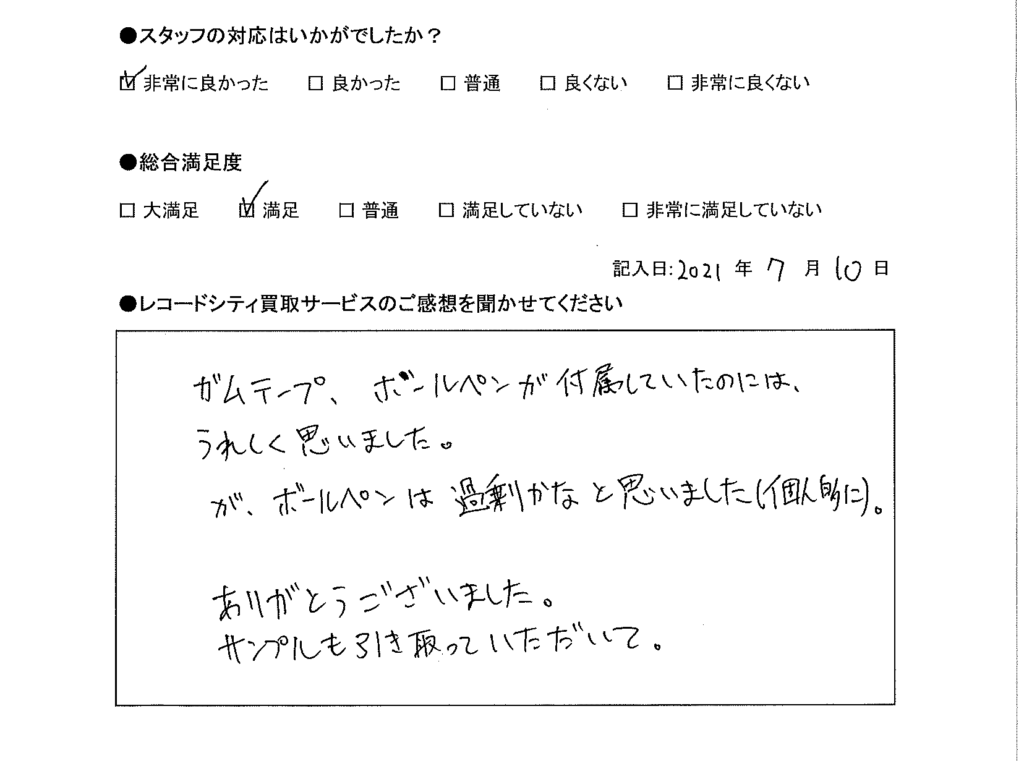 ●スタッフの対応はいかがでしたか？
☑ 非常に良かった □ 良かった □ 普通 □ 良くない □ 非常に良くない
●総合満足度
□ 大満足 ☑ 満足 □ 普通 □ 満足していない □ 非常に満足していない
記入日:2021 年 7 月 10 日
●レコードシティ買取サービスのご感想を聞かせてください
ガムテープ、ボールペンが付属していたのには、
うれしく思いました。
が、ボールペンは過剰かなと思いました(個人的に)。
ありがとうございました。
サンプルも引き取っていただいて。